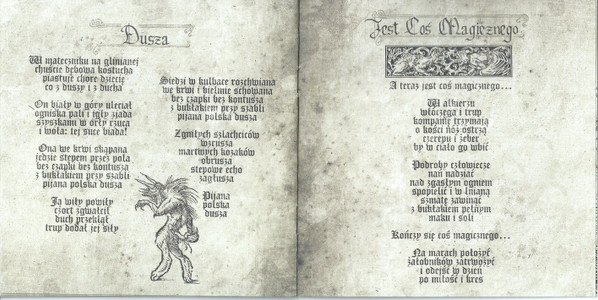 Dusza
W mateczniku na glinianej
chuście dębowa kostucha
piastuje chore dziecię
co z duszy i z ducha
On biały w góry uleciał
ogniska pali i igły zjada
szyszkami w orły rzuca
i woła: tej suce biada!
Ona we krwi skąpana
jedzie stepem przez pola
bez czapki bez kontusza
z bukłakiem przy szabli
pijana polska dusza
Ją wiły powiły
czort zgwałcił
duch przeklął
trup dodał jej siły
Siedzi w kulbace rozchwiana
we krwi i bielmie schowana
bez czapki bez kontusza
z bukłakiem przy szabli
pijana polska dusza
Zgniłych szlachciców
wzrusza
martwych kozaków
obrusza
stepowe echo
zagłusza
Pijana
polska
dusza
Jest Coś Magicznego
A teraz jest coś magicznego...
W alkierzu
włóczęga i trup
kompanię trzymają
o kości nóż ostrzą
czerepu i żeber
by w ciało go wbić
Podroby człowiecze
nań nadziać
nad zgasłym ogniem
spopielić i w lnianą
szmatę zawinąć
z bukłakiem pełnym
maku i soli
Kończy się coś magicznego...
Na marach położyć
żałobników zatrwożyć
i odejść w dzień
po miłość i kres